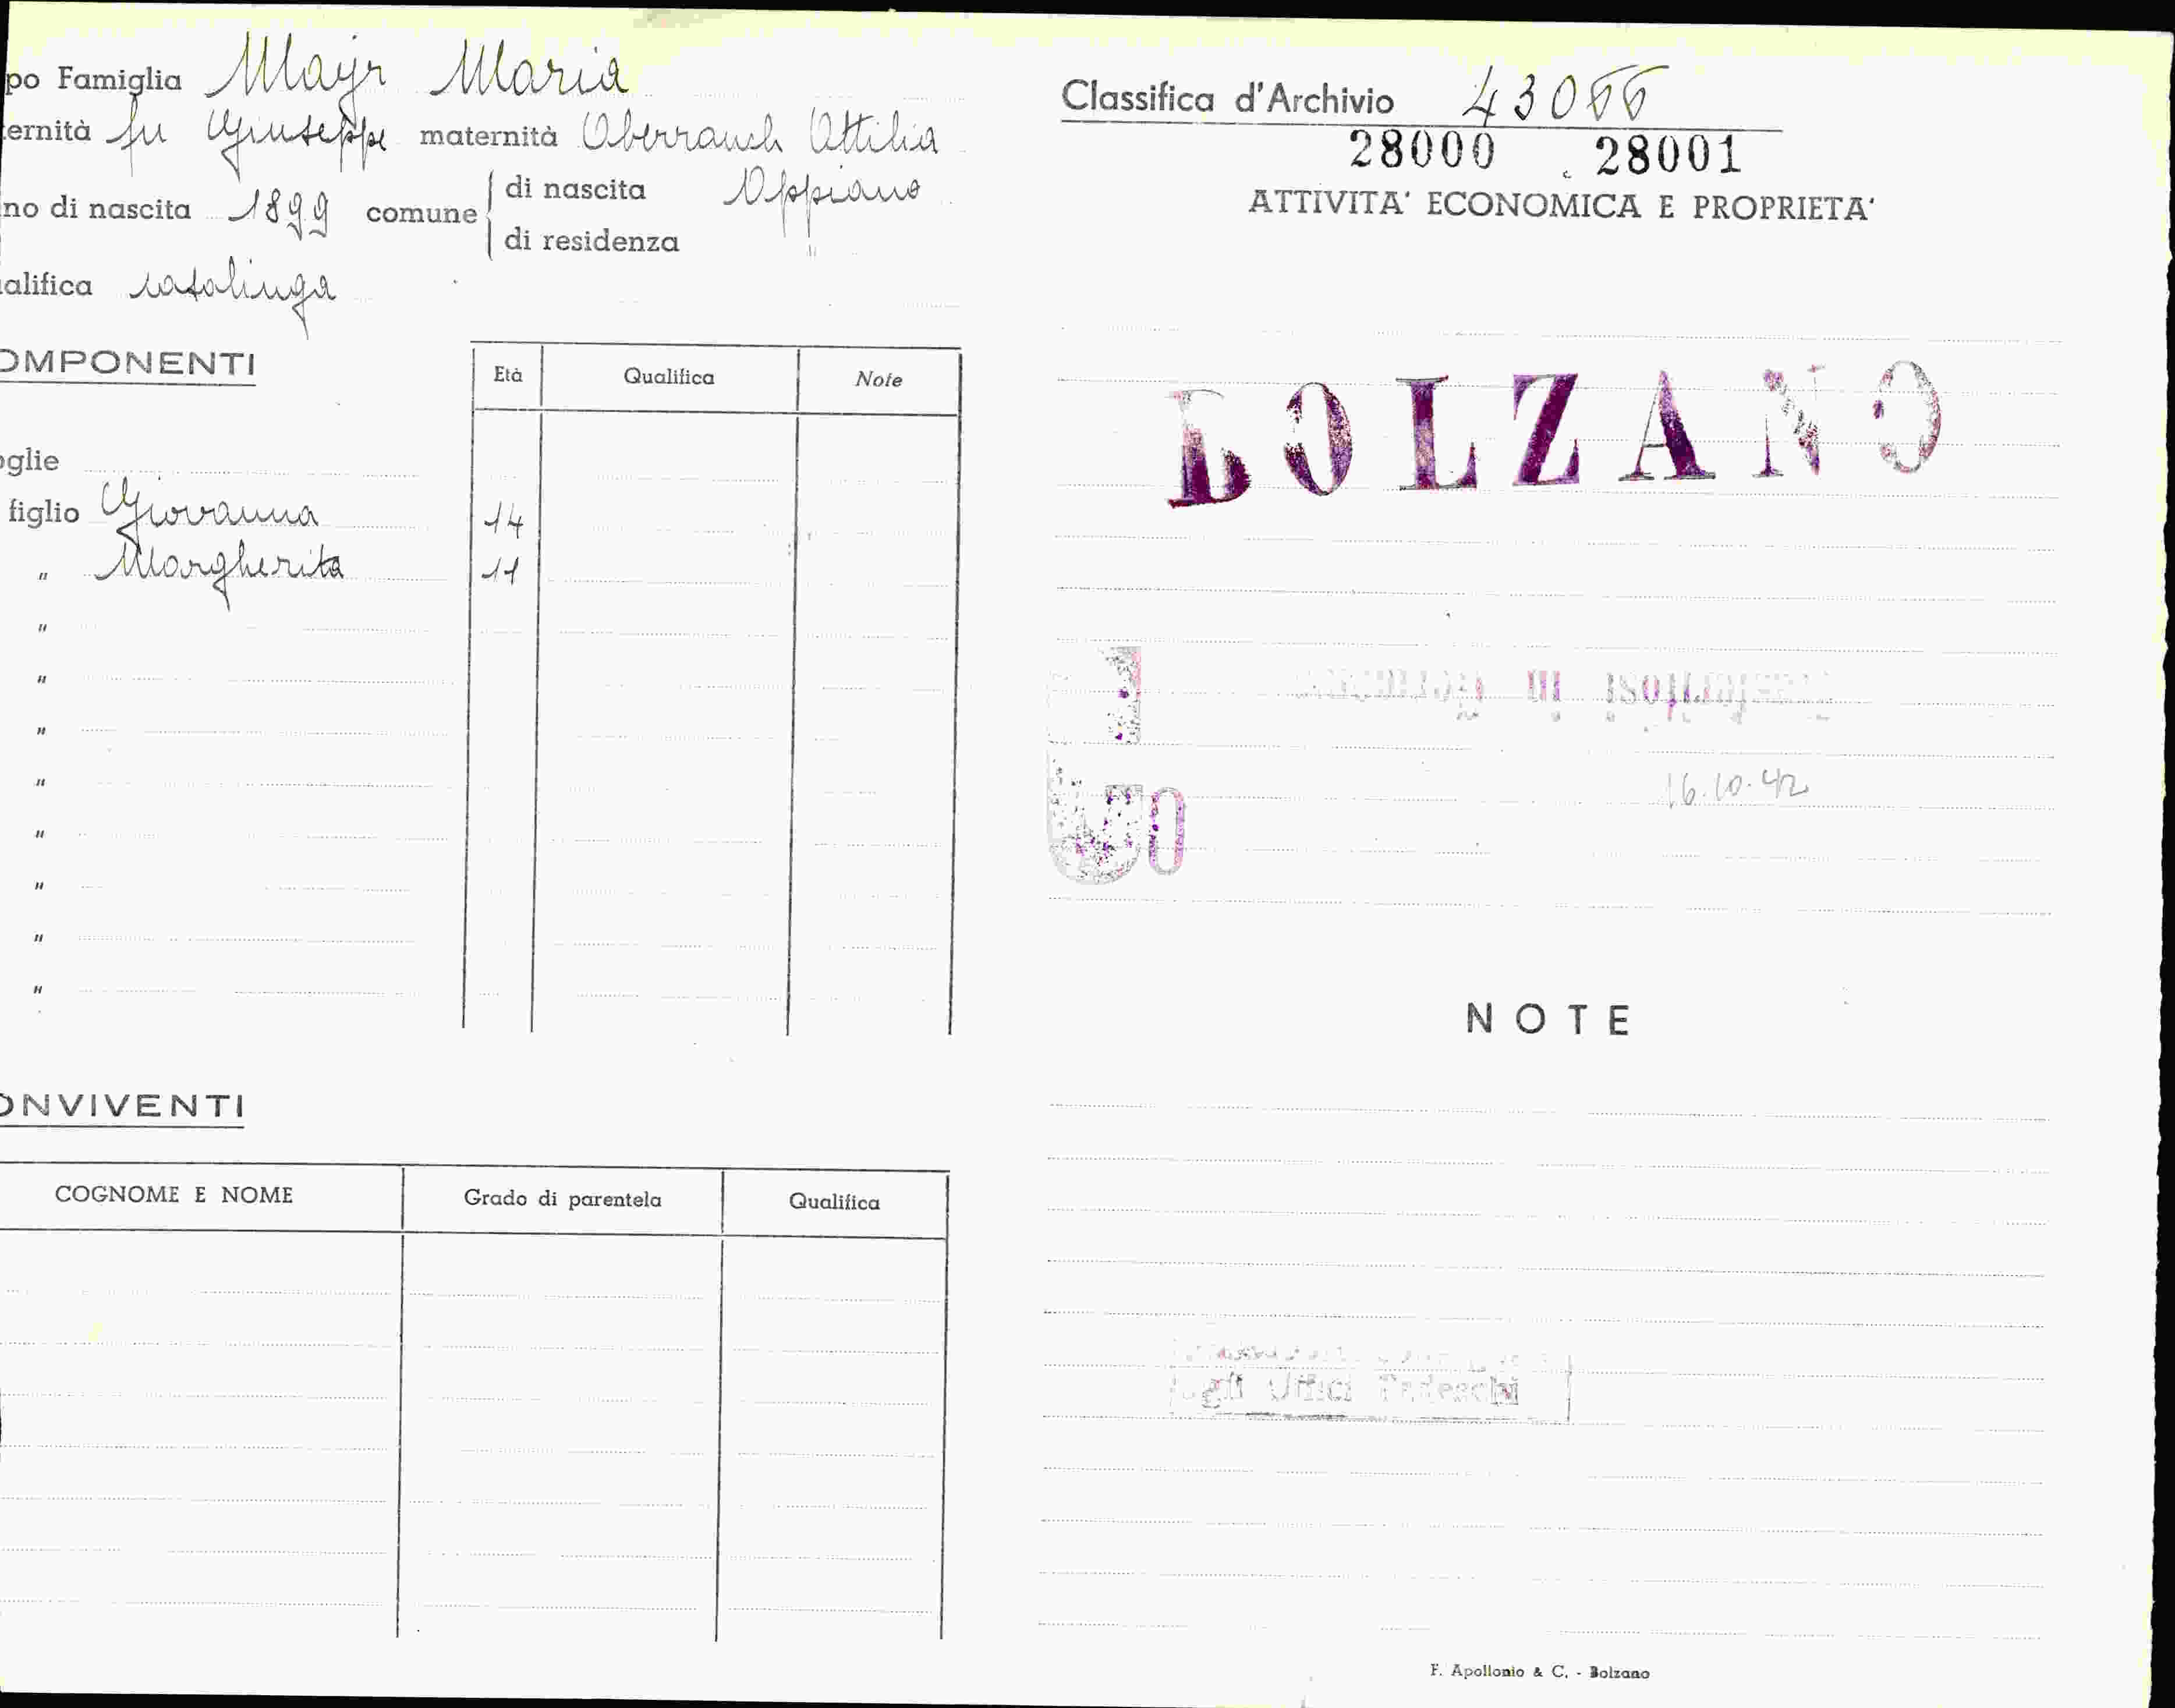 po Famiglia Mayr Maria
ernità fu Giuseppe maternità Oberrauch Attilia
no di nascita 1899 comune di nascita Appiano
di residenza "
alifica casalinga
OMPONENTI
Età Qualifica Note
oglie
figlio Giovanna 14
" Margherita 11
"
"
"
"
"
"
"
"
ONVIVENTI
COGNOME E NOME Grado di parentela Qualifica
Classifica d'Archivio 43066
28000 28001
ATTIVITA' ECONOMICA E PROPRIETA'
BOLZANO
16.10.42
NOTE
Uffici Tedeschi
F. Apollonio & C. - Bolzano